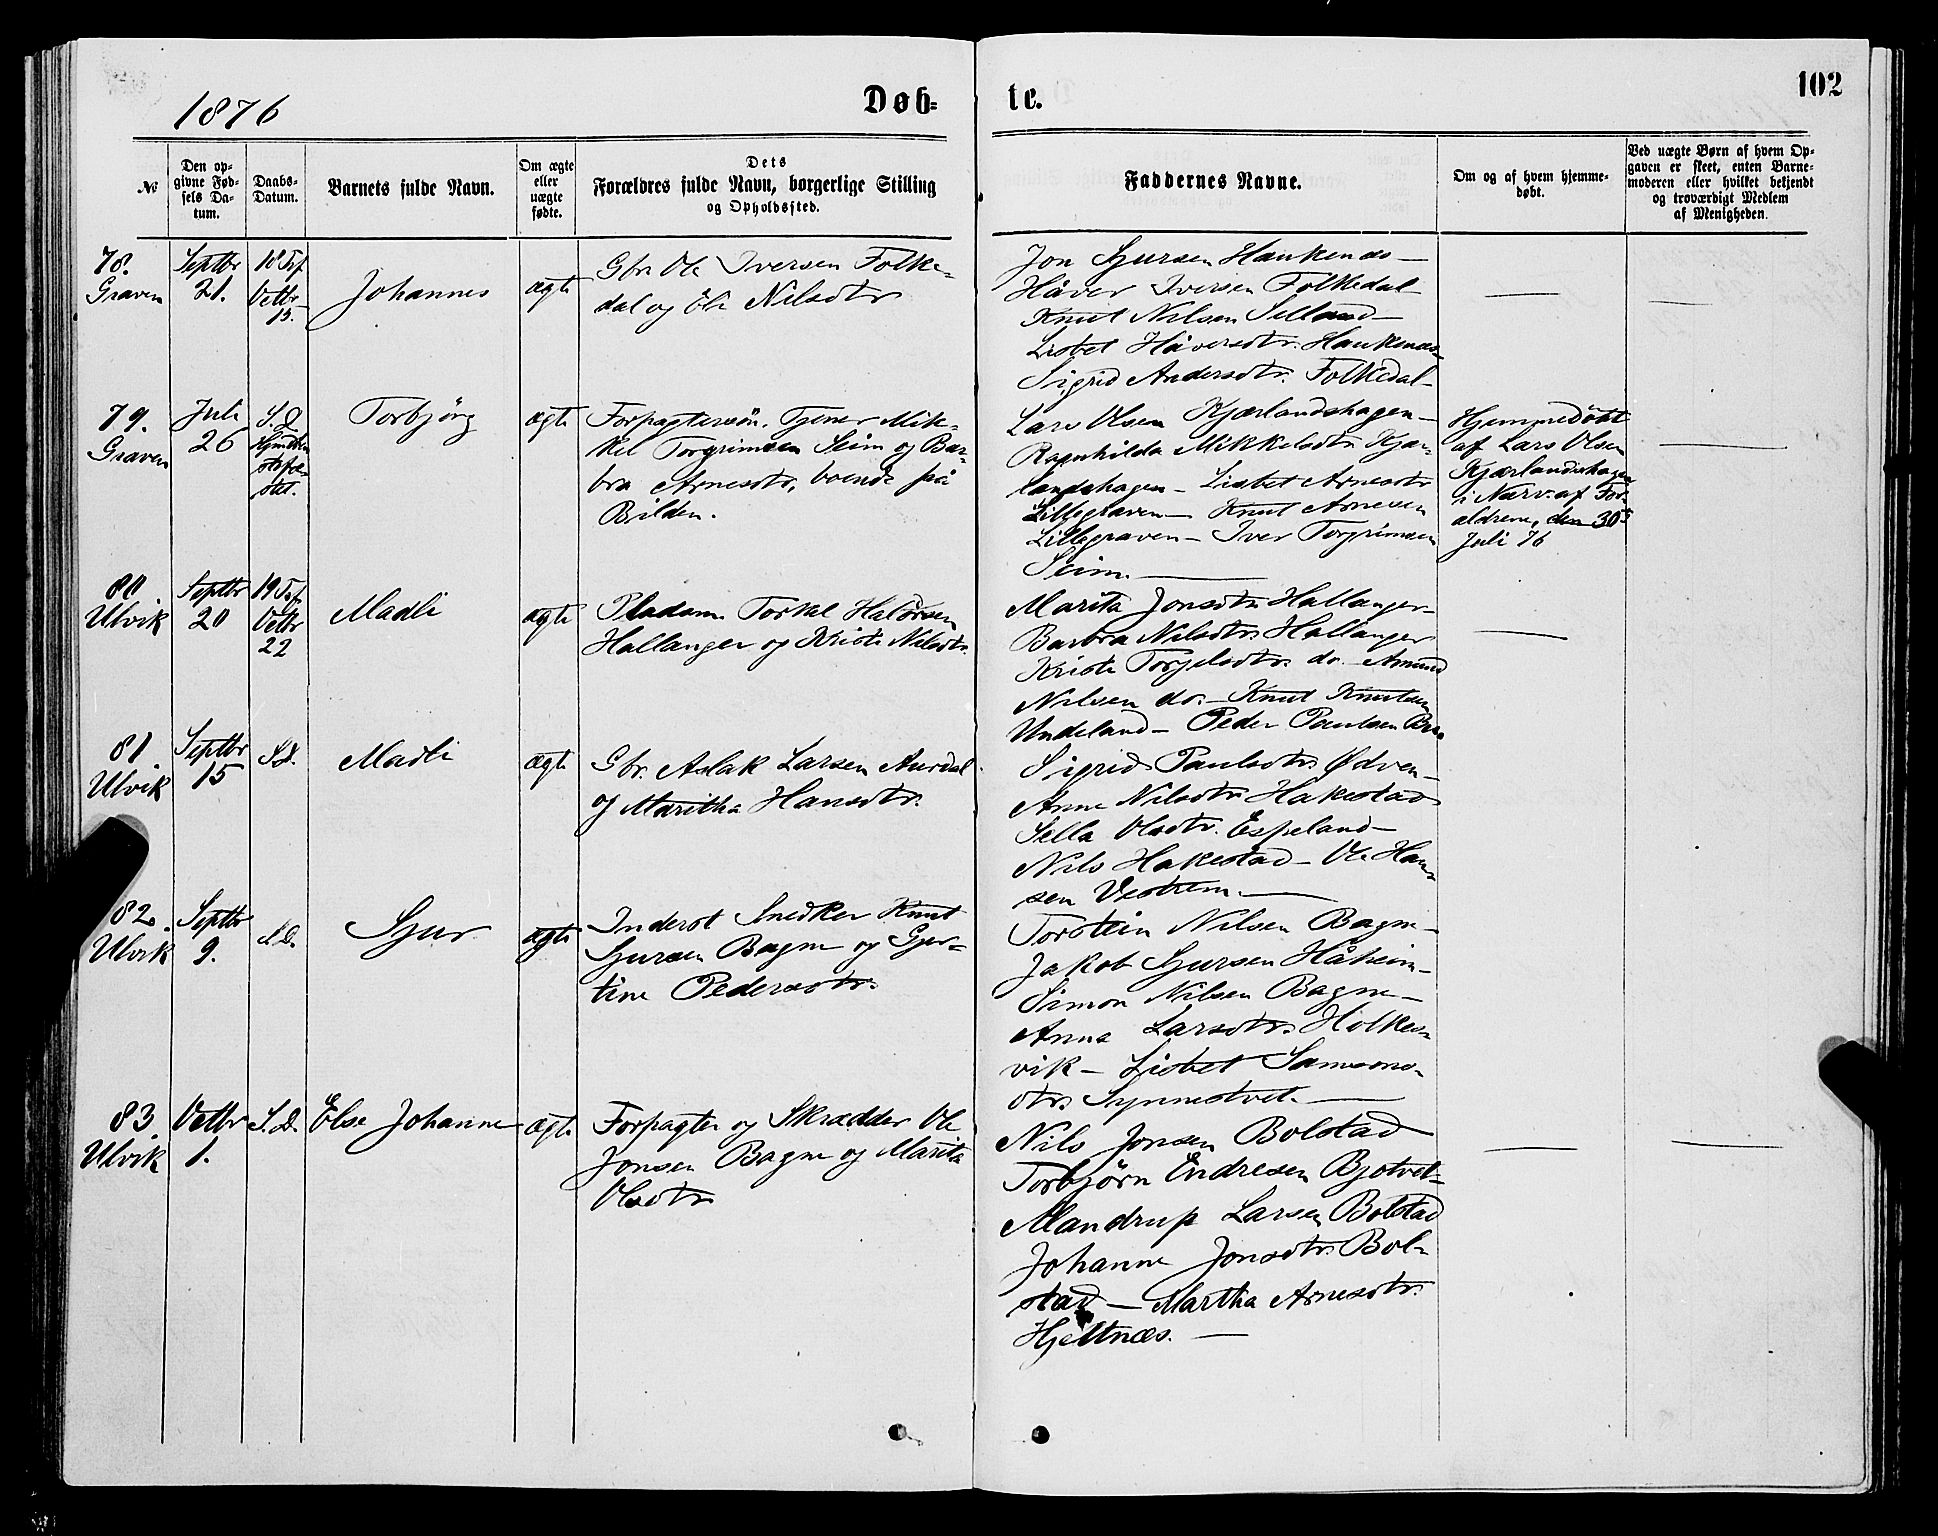 1876
Døb=
te.
102
№
Den op-
givne Fød-
sels Da-
tum.
Daabs-
Datum.
Barnets fulde Navn.
Om ægte
eller
uægte
fødte.
Dets
Forældres fulde Navn, borgerlige Stilling
og Opholdssted.
Faddernes Navne.
Om og af hvem hjemme-
døbt.
Ved uægte Børn af hvem Op-
gaven er skeet, enten Barne-
moderen eller hvilket bekjendt
og troværdigt Medlem
af Menigheden.
78.
Graven
Septbr
21.
18 Trf
Octbr
15.
Johannes
ægte
Gbr. Ole Iversen Folke-
dal og Eli Nilsdtr
Jon Sjursen Haukenæs —
Håver Iversen Folkedal
Knut Nilsen Selland —
Lisbet Håversdtr. Haukenæs
Sigrid Andersdtr. Folkedal —
79.
Graven
Juli
26
S. D.
Torbjörg
ægte
Forpagtersön, Tjener Mik-
kel Torgrimsen Seim og Bar-
bra Arnesdtr, boende på
Bilden.
Lars Olsen Kjærlandshagen —
Ragnhilda Mikkelsdtr. Kjær-
landshagen — Lisbet Arnesdtr
Lillegraven — Knut Arnesen
Lillegraven — Iver Torgrimsen
Seim. —
Hjemmedöbt
af Lars Olsen
Kjærlandshagen
i Nærv. af For-
ældrene, den 30
Juli 76
80
Ulvik
Septbr
20
19 Trf
Octbr
22
Madli
ægte
Pladsm. Torkel Halvorsen
Hallanger og Kristi Nilsdtr.
Marita Jonsdtr. Hallanger —
Barbra Nilsdtr. Hallanger
Kristi Torgilsdtr. do — Amund
Nilsen do. — Knut Knutsen
Undeland — Peder Paulsen
81.
Ulvik
Septbr
15
S. D.
Madli
ægte
Gbr. Aslak Larsen Aurdal
og Maritha Hansdtr.
Sigrid Paulsdtr. Ødven —
Anne Nilsdtr. Hakestad
Sella Olsdtr. Espeland —
Nils Hakestad — Ole Han-
sen Vestrem. —
82.
Ulvik
Septbr
9.
S. D.
Sjur
ægte
Inderst Snedker Knut
Sjursen Bagne og Gjer-
tine Pedersdtr.
Torstein Nilsen Bagne —
Jakob Sjursen Håheim —
Simon Nilsen Bagne —
Anna Larsdtr. Holkes-
vik — Lisbet Samsons-
dtr. Synnestvet. —
83.
Ulvik
Octbr
1.
S. D.
Else Johanne
ægte
Forpagter og Skrædder Ole
Jonsen Bagne og Marita
Olsdtr
Nils Jonsen Bolstad
Torbjörn Endresen Bjotvet —
Mandrup Larsen Bolstad
Johanne Jonsdtr. Bol-
stad — Martha Arnesdtr.
Hjeltnæs. —